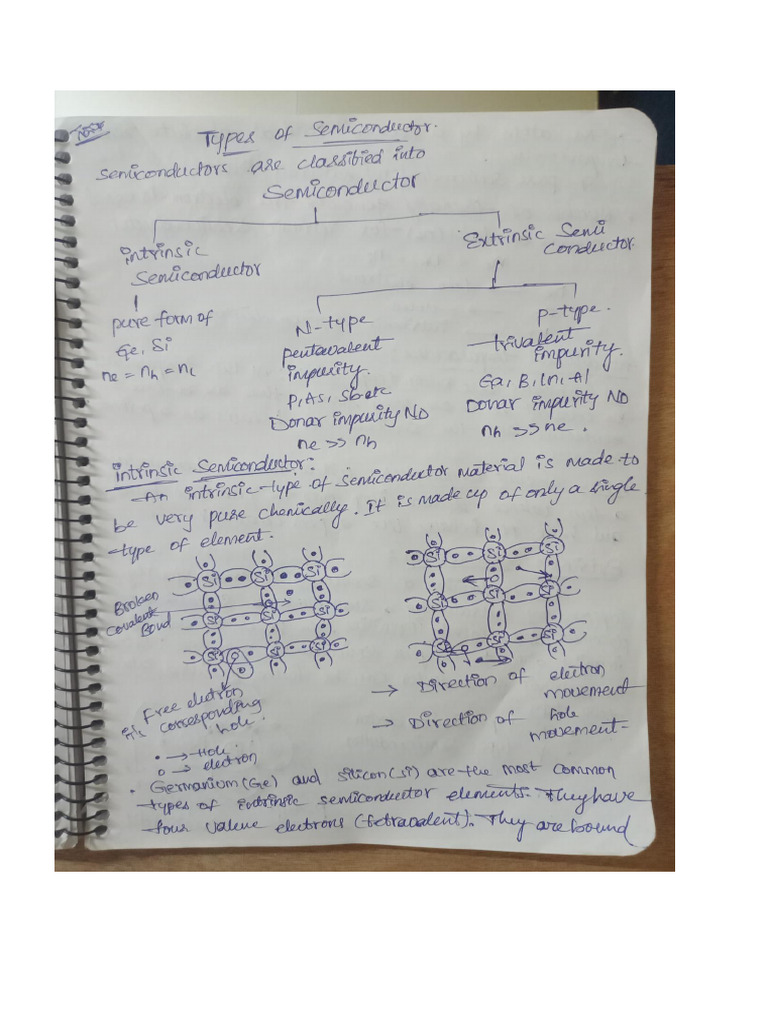 Types of Semiconductor.
Semiconductors are classified into
Semiconductor
intrinsic
Semiconductor
Extrinsic Semi
Conductor.
pure form of
Ge, Si
ne = nh = ni
N-type
pentavalent
impurity.
P, As, Sb etc
Donar impurity ND
ne >> nh
P-type.
trivalent
impurity.
Ga, B, In, Al
Donar impurity ND
nh >> ne.
intrinsic Semiconductor:
An intrinsic type of semiconductor material is made to
be very pure chemically. It is made up of only a single
type of element.
Si Si Si
Si Si Si
Si Si
Si Si Si
Si Si Si
Si Si Si
Broken
covalent
Bond
Free electron
it's corresponding
hole.
• → Hole.
o → electron
→ Direction of electron
movement
→ Direction of hole
movement
• Germanium(Ge) and silicon(si) are the most common
types of intrinsic semiconductor elements. They have
four valene electrons (tetravalent). They are bound